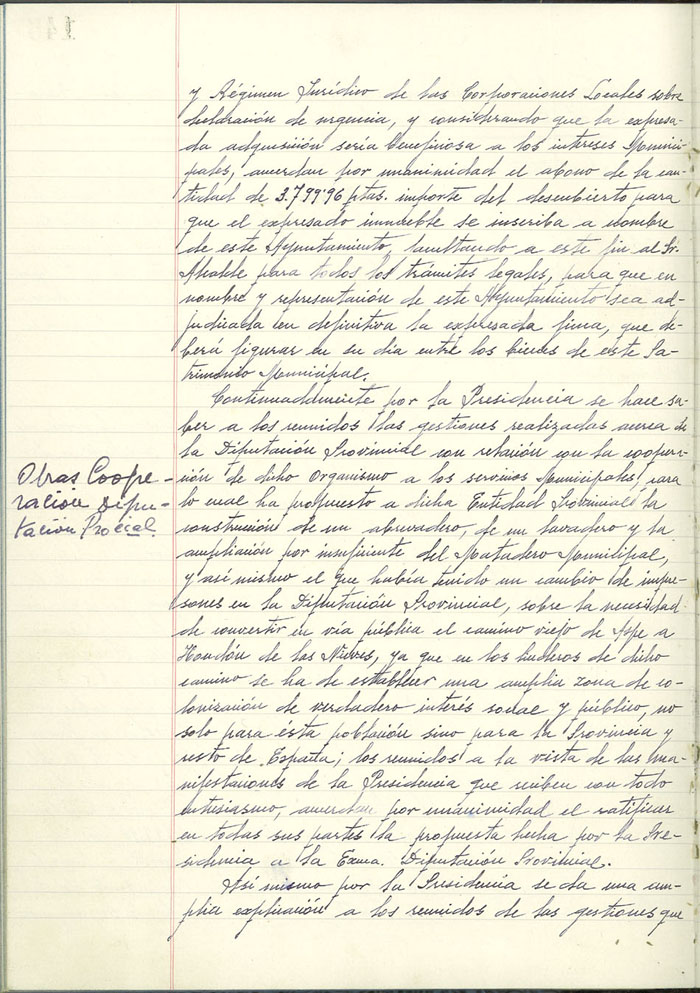 y Régimen Jurídico de las Corporaciones Locales sobre
declaración de urgencia, y considerando que la expresa-
da adquisición sería beneficiosa a los intereses Munici-
pales, acuerdan por unanimidad el abono de la can-
tidad de 3.799'96 ptas. importe del descubierto para
que el expresado inmueble se inscriba a nombre
de este Ayuntamiento, facultando a este fin al Sr.
Alcalde para todos los trámites legales, para que en
nombre y representación de este Ayuntamiento sea ad-
judicada en definitiva la expresada finca, que de-
berá figurar en su día entre los bienes de este Pa-
trimonio Municipal.
Continuadamente por la Presidencia se hace sa-
ber a los reunidos las gestiones realizadas acerca de
la Diputación Provincial con relación con la coopera-
Obras Coope-
ración Dipu-
tación Procial.
ción de dicho Organismo a los servicios Municipales, para
lo cual ha propuesto a dicha Entidad Provincial la
construcción de un abrevadero, de un lavadero y la
ampliación por insuficiente del Matadero Municipal,
y así mismo el que había tenido un cambio de impre-
siones en la Diputación Provincial, sobre la necesidad
de convertir en vía pública el camino viejo de Aspe a
Hondón de las Nieves, ya que en los linderos de dicho
camino se ha de establecer una amplia zona de co-
lonización de verdadero interés social y público, no
solo para ésta población sino para la Provincia y
resto de España; los reunidos a la vista de las ma-
nifestaciones de la Presidencia que reciben con todo
entusiasmo, acuerdan por unanimidad el ratificar
en todas sus partes la propuesta hecha por la Pre-
sidencia a la Exma. Diputación Provincial.
Así mismo por la Presidencia se da una am-
plia explicación a los reunidos de las gestiones que